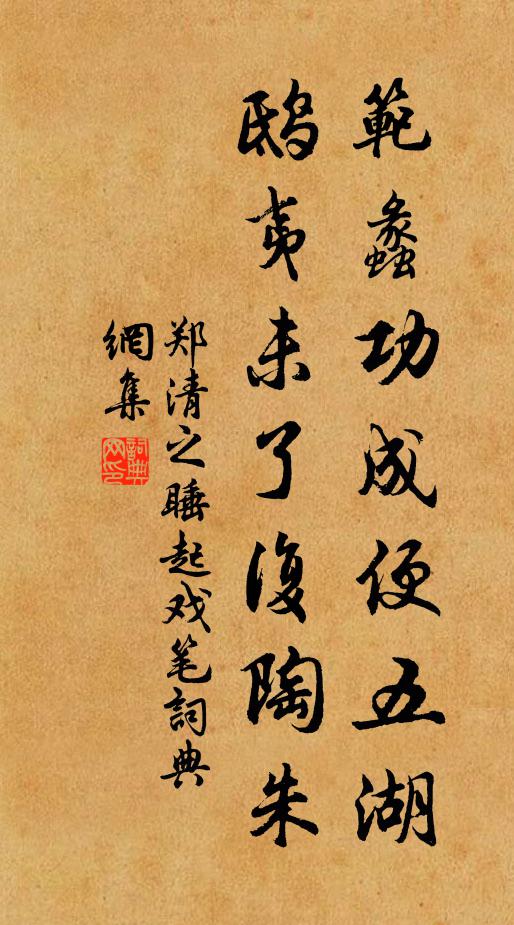 範蠡功成便五湖
鴟夷未了復陶朱
郑清之睡起戏笔詞典
網集
詞典网印